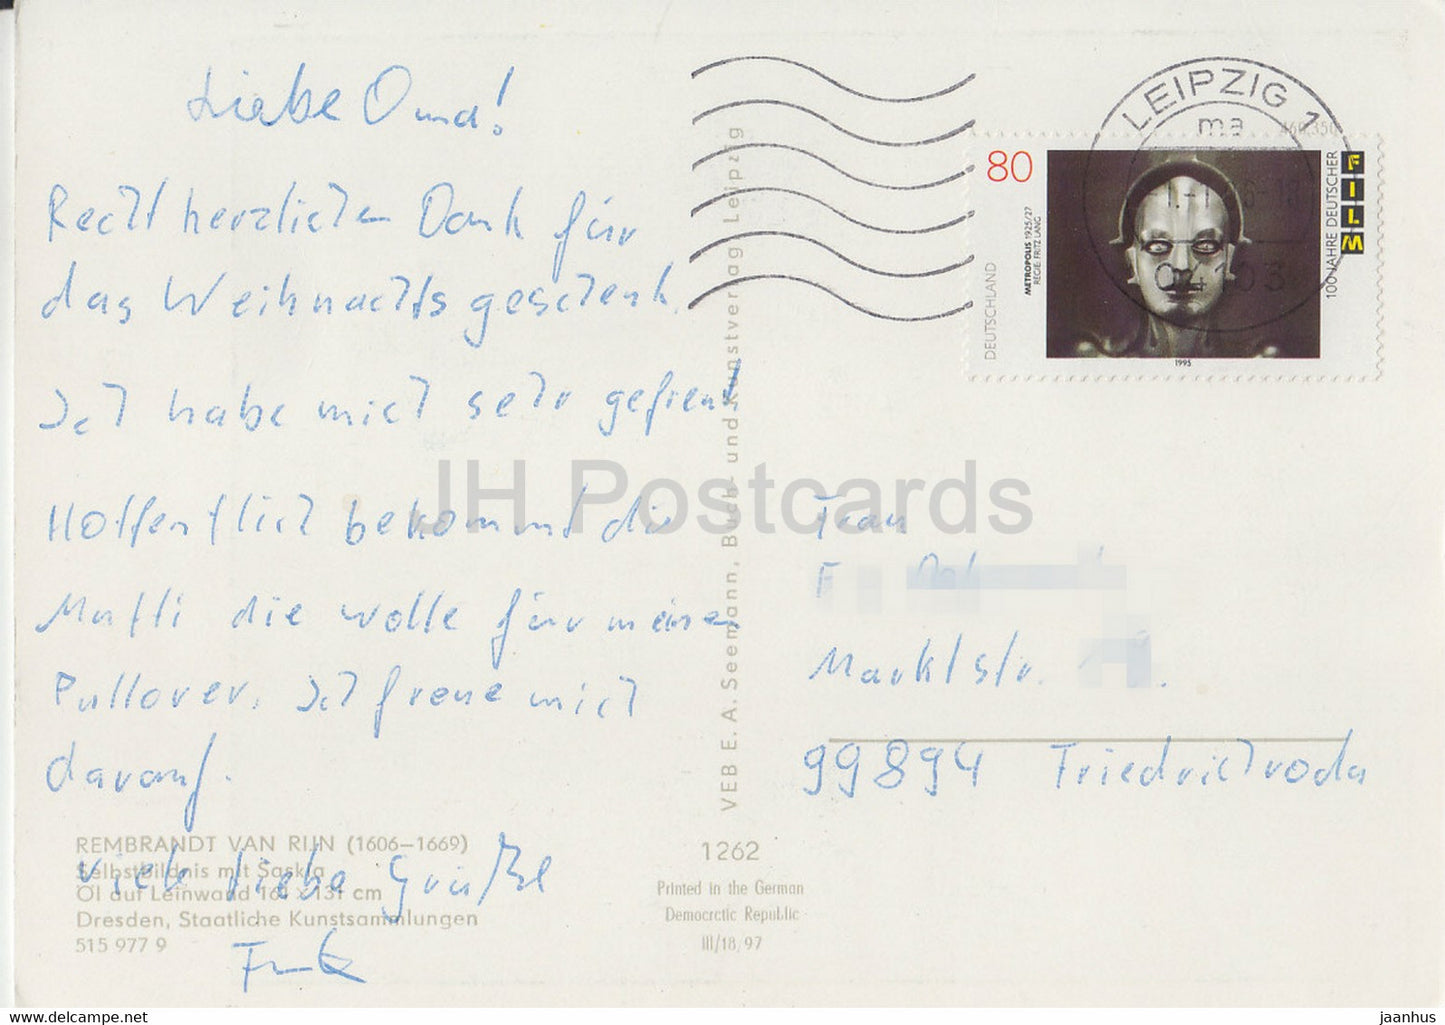 Liebe Oma!
Recht herzlichen Dank für
das Weihnachtsgeschenk.
Ich habe mich sehr gefreut
Hoffentlich bekommt die
Mutti die Wolle für meinen
Pullover. Ich freue mich
darauf.
Viele liebe Grüße
REMBRANDT VAN RIJN (1606–1669)
Selbstbildnis mit Saskia
Öl auf Leinwand 161 × 131 cm
Dresden, Staatliche Kunstsammlungen
515 977 9
VEB E. A. Seemann, Buch- und Kunstverlag Leipzig
1262
Printed in the German
Democratic Republic
III/18/97
LEIPZIG 1
ma
04103
80
DEUTSCHLAND
METROPOLIS 1925/27
REGIE: FRITZ LANG
100 JAHRE DEUTSCHER
FILM
1995
460,350
Frau
F
Marktstr.
99894 Friedrichroda
JH Postcards
www.delcampe.net
jaanhus